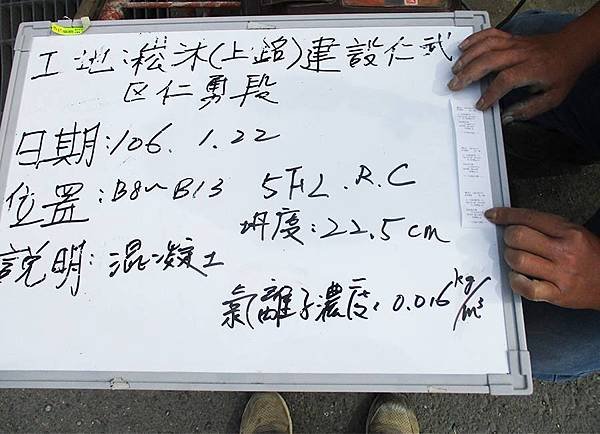 工地:崧沐(上路)建設仁武
区仁勇段
日期:106.1.22
位置:B8~B13 5FL.R.C
坍度:22.5cm
説明:混凝土
氯離子濃度:0.016kg/m³